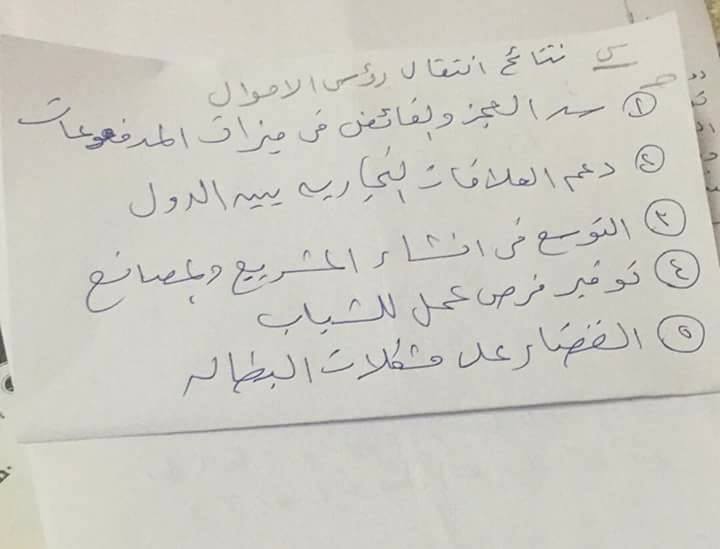 س نتائج انتقال رؤس الاموال
① سد العجز والفائض فى ميزان المدفوعات
② دعم العلاقات التجاريه بين الدول
③ التوسع فى انشاء المشريع والمصانع
④ توفير فرص عمل للشباب
⑤ القضاء على مشكلات البطاله